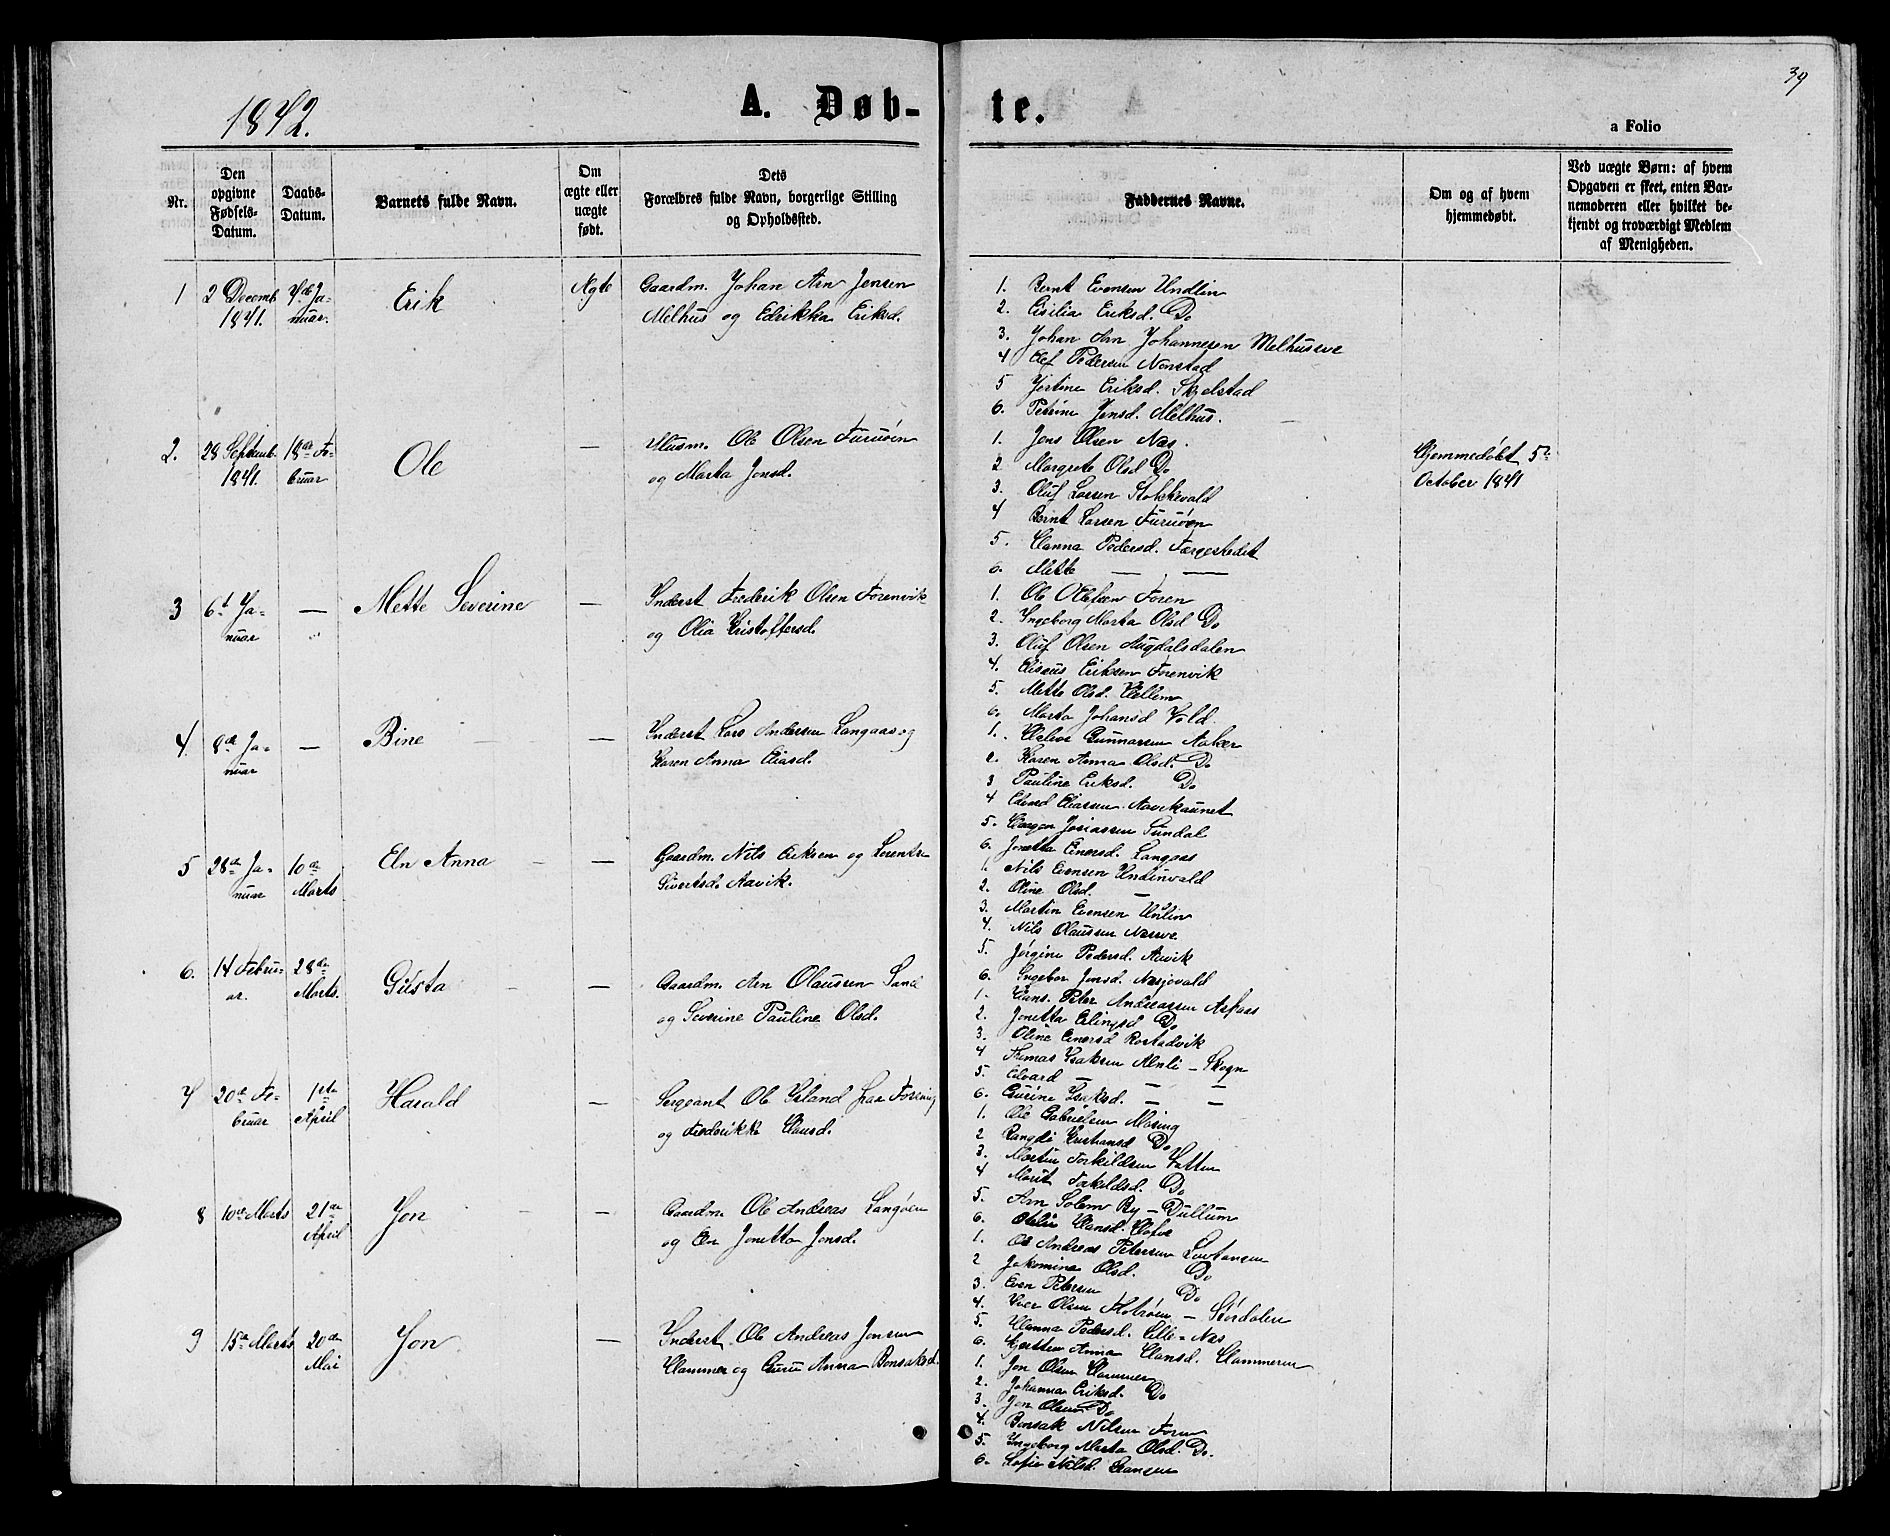 39
1872.
A. Døb-
te.
a Folio
Nr.
Den
opgivne
Fødsels-
Datum.
Daabs-
Datum.
Barnets fulde Navn.
Om
ægte eller
uægte
født.
Dets
Forældres fulde Navn, borgerlige Stilling
og Opholdssted.
Faddernes Navne.
Om og af hvem
hjemmedøbt.
Ved uægte Børn: af hvem
Opgaven er skeet, enten Bar-
nemoderen eller hvilket be-
kjendt og troværdigt Medlem
af Menigheden.
1
2 Decemb.
1871.
7de Ja-
nuar.
Erik
Ægte
Gaardm. Johan Arn Jensen
Melhus og Edrikka Eriksd.
1. Bernt Evensen Undlin
2. Cisilia Eriksd. Do
3. Johan Arn Johannesen Melhusve
4 Olef Pedersen Nonstad
5 Jertine Eriksd. Skjelstad
6. Petrine Jensd. Melhus.
2.
28 Septemb.
1871.
18de Fe-
bruar
Ole
—
Husm. Ole Olsen Furuøen
og Marta Jonsd.
1. Jens Olsen Nas.
2 Margrete Olsd Do
3. Oluf Larsen Stokkevald
4 Bernt Larsen Furuøen
5. Hanna Pedersd. Færgestedet
6. Mette — —
Hjemmedøbt 5te
October 1871
3
6t Ja-
nuar
—
Mette Severine
—
Inderst Frederik Olsen Forenvik
og Olia Kristoffersd.
1. Ole Ollefsen Foren
2. Ingeborg Marta Olsd Do
3. Oluf Olsen Augdalsdalen
4. Elisæus Eriksen Forenvik
5. Mette Olsd. Hellem
6. Marta Johansd Vold
4.
8de Ja-
nuar
—
Bine
—
Inderst Lars Andersen Langaas og
Karen Anna Eliasd.
1. Helve Gunnarsen Aaker
2. Karen Anna Olsd. Do
3 Pauline Eriksd. Do
4 Edvard Eliassen Aavikaunet
5. Haagen Josiassen Sundal
6. Jonetta Einersd. Langaas
5
28de Ja-
nuar
10de
Marts
Eln Anna
—
Gaardm. Nils Eriksen og Lorentse
Sivertsd. Aavik.
1. Nils Evensen Undinvald
2. Oline Olsd. —
3. Martin Evensen Unlin
4. Nils Olaussen Nasve
5. Jørgine Pedersd. Aavik
6. Ingebor Jonsd. Nasjovald
6.
14 Febru-
ar.
28de
Marts.
Gusta
—
Gaardm. Arn Olaussen Sand
og Severine Pauline Olsd.
1. Hans Peter Andreassen Aspaas
2. Jonetta Elingsd Do
3. Oline Einersd Rostadvik
4 Tomas Isaksen Alnli – Skogn
5. Edvard — — —
6. Gurine Isaksd. — —
7
20de Fe-
bruar
1ste
April
Harald
—
Sergeant Ole Ystand paa Foreing
og Frederikke Hansd.
1. Ole Gabrielsen Mosing
2 Rangdi Kristiansd Do
3. Martin Torkildsen Vatten
4 Marit Torkildsd. Do
5. Arn Solem By – Dullum
6. Otelie Hansd. Hofve
8
10de Marts
21de
April
Jon
—
Gaardm. Ole Andreas Langøen
og Eln Jonetta Jonsd.
1. Ole Andreas Petersen Levtangen
2 Jakomina Olsd. Do
3. Even Petersen Do
4. Iver Olsen Floørøen – Stordalen
5. Hanna Pedersd. Lille-Nas
6. Gjertru Anna Hansd. Hammeren
9
15de Marts
20de
Mai
Jon
—
Inderst Ole Andreas Jonsen
Hammer og Guru Anna Bonsaksd.
1. Jon Olsen Hammer
2. Johanna Eriksd. Do
3. Jon Olsen Do
4. Bonsak Nilsen Foren
5. Ingeborg Marta Olsd. Do.
6. Sofie Nilsd. Bangsen